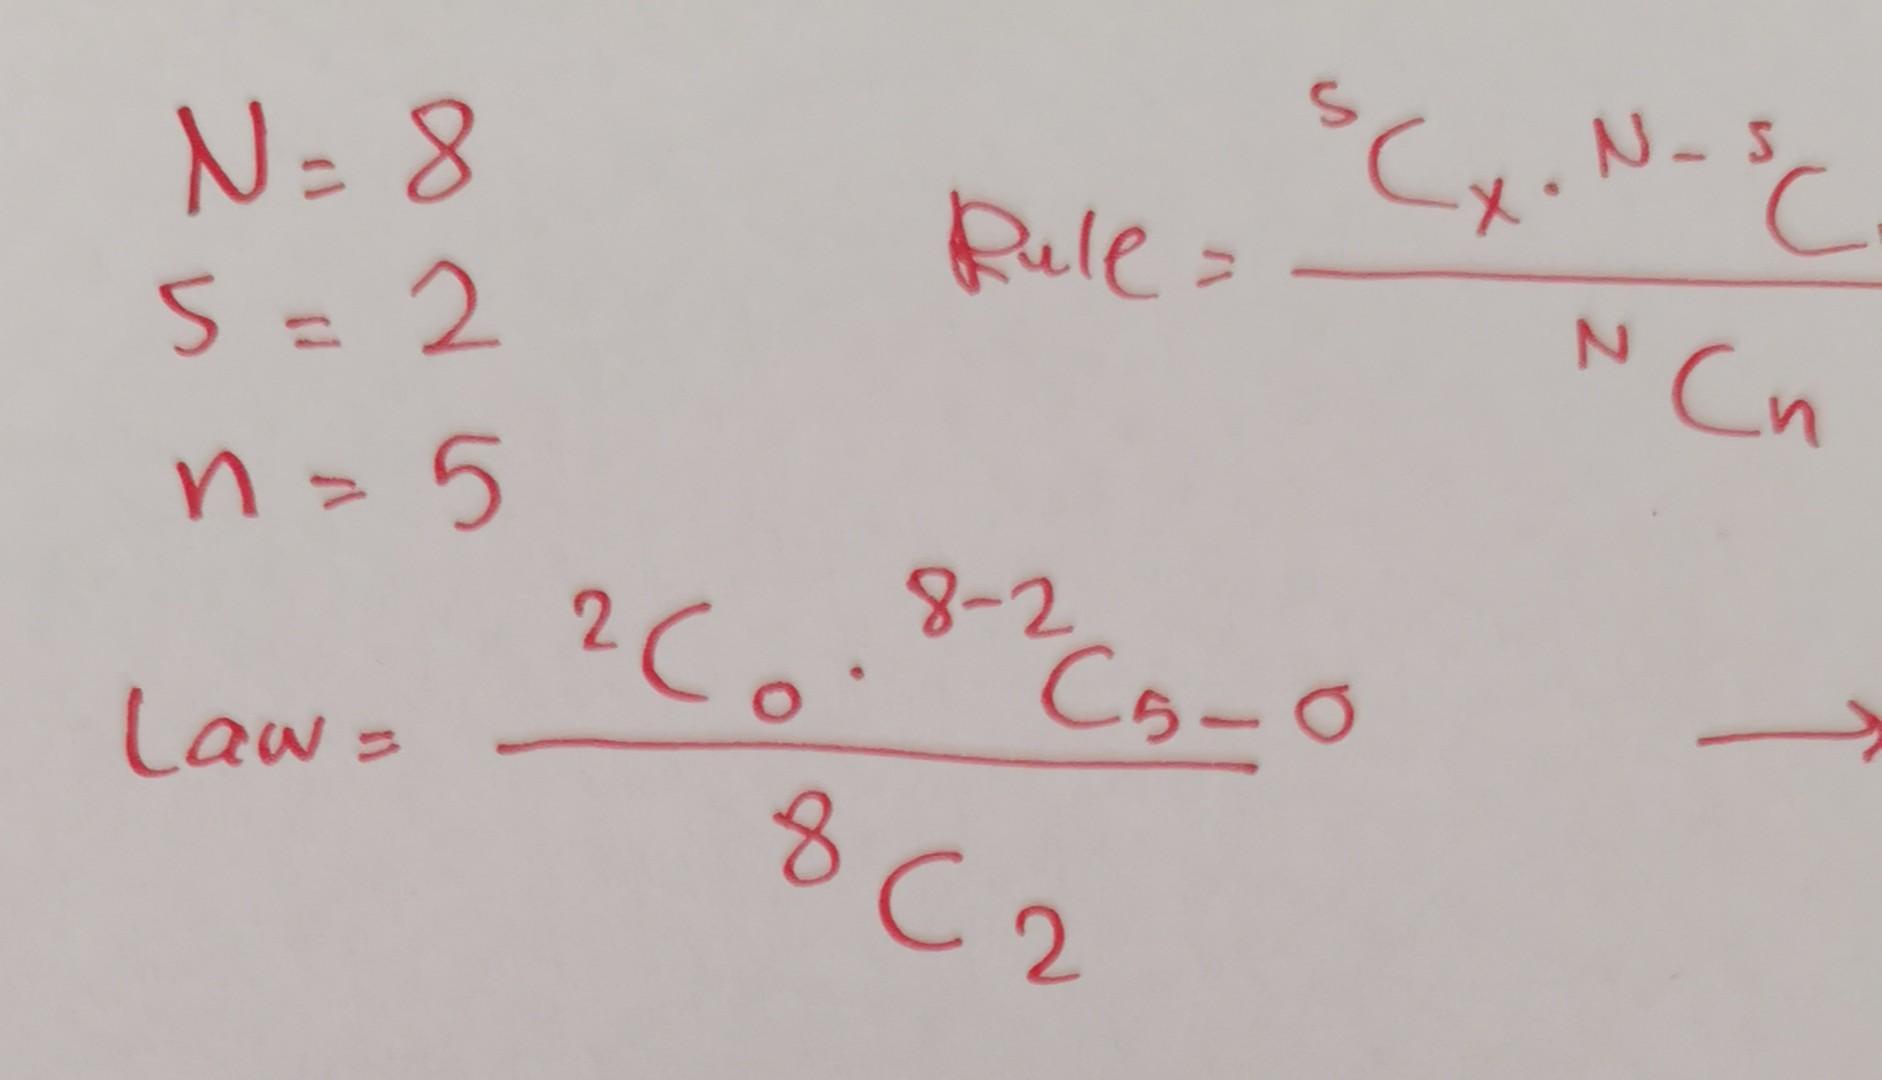 N = 8
S = 2
n = 5
Rule = ˢCₓ · ᴺ⁻ˢC
ᴺCₙ
Law = ²C₀ · ⁸⁻²C₅₋₀ →
⁸C₂